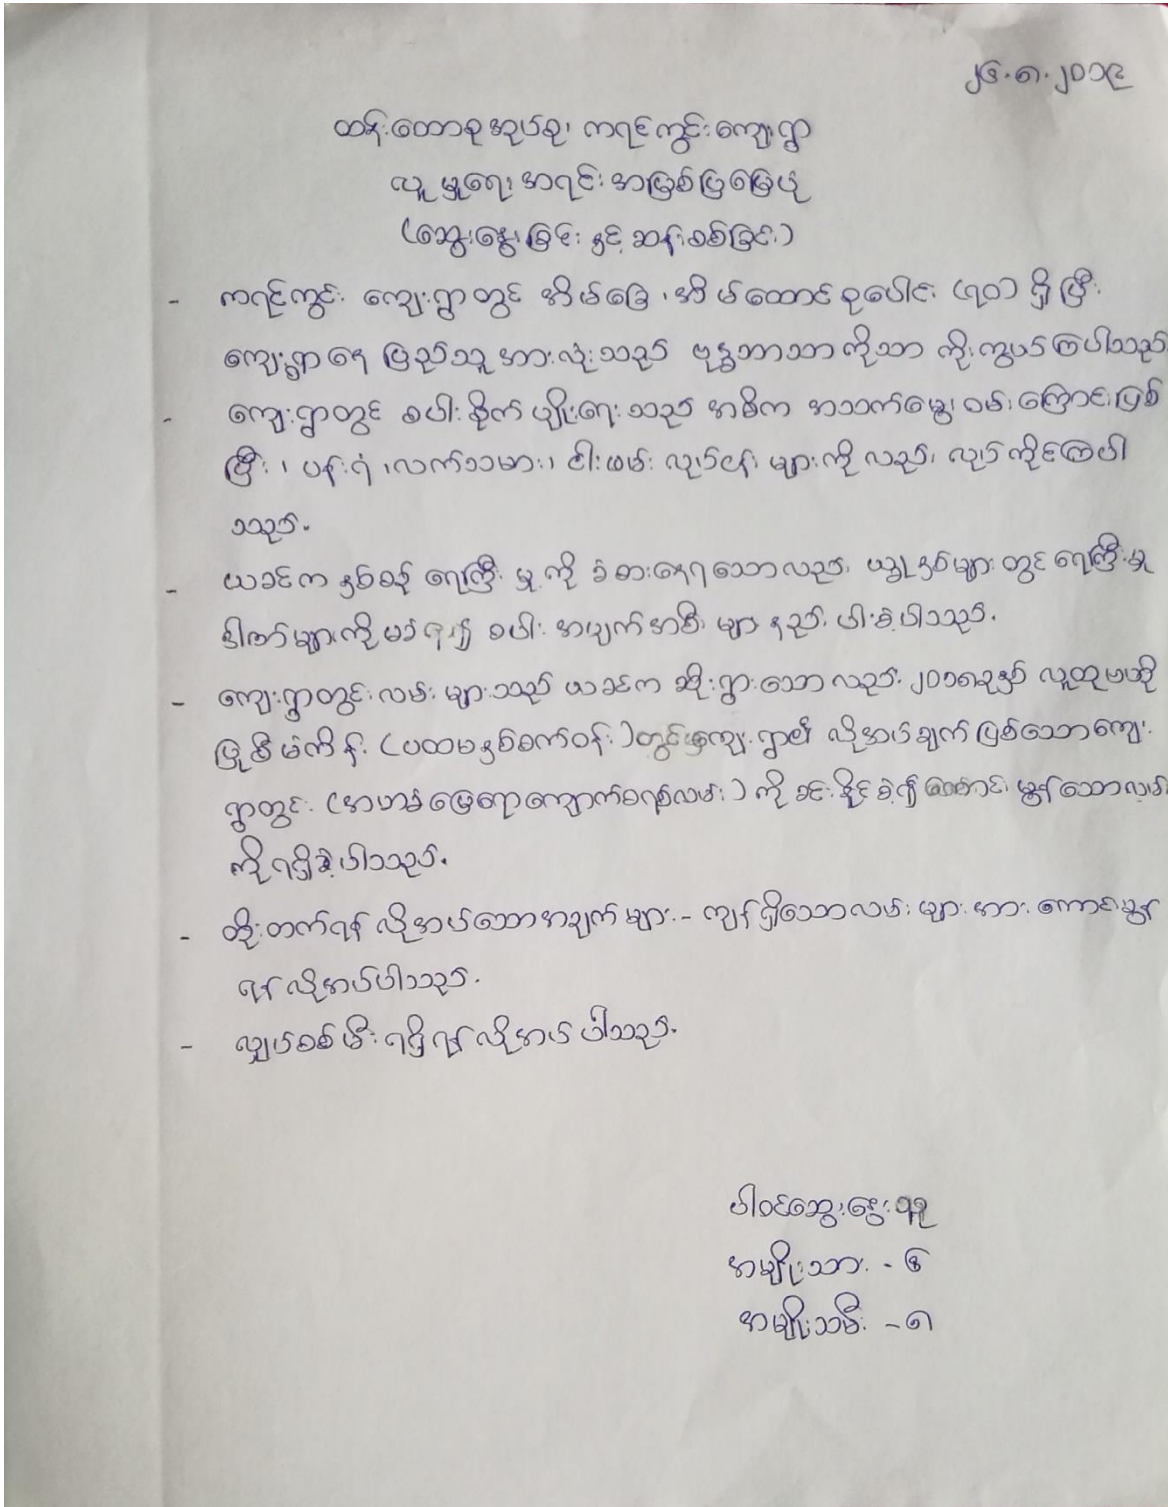 ၂၆.၈.၂၀၁၉
ထန်းတောစုအုပ်စု၊ ကရင်ကွင်းကျေးရွာ
လူမှုရေး အရင်းအမြစ်ပြမြေပုံ
(ဆွေးနွေးခြင်း နှင့် ဆန်းစစ်ခြင်း)
- ကရင်ကွင်း ကျေးရွာတွင် အိမ်ခြေ ၊ အိမ်ထောင်စုပေါင်း (၇၀) ရှိပြီး
ကျေးရွာနေ ပြည်သူအားလုံးသည် ဗုဒ္ဓဘာသာကိုသာ ကိုးကွယ်ကြပါသည်
- ကျေးရွာတွင် စပါးစိုက်ပျိုးရေးသည် အဓိက အသက်မွေးဝမ်းကြောင်းဖြစ်
ပြီး ၊ ပန်းရံ ၊ လက်သမား ၊ ငါးဖမ်း လုပ်ငန်းများကိုလည်း လုပ်ကိုင်ကြပါ
သည်။
- ယခင်က နှစ်စဉ် ရေကြီးမှုကို ခံစားနေရသော်လည်း ယခုနှစ်များတွင် ရေကြီးမှု
ဒဏ်များကိုမခံရ၍ စပါး အပျက်အစီးများ နည်းပါးခဲ့ပါသည်။
- ကျေးရွာတွင်းလမ်းများသည် ယခင်က ဆိုးရွားသော်လည်း ၂၀၁၈ခုနှစ် လူထုဗဟို
ပြုစီမံကိန်း (ပထမနှစ်စက်ဝန်း)တွင် ကျေးရွာ၏ လိုအပ်ချက်ဖြစ်သော ကျေး
ရွာတွင်း (အဟာခံမြေရောကျောက်စရစ်လမ်း) ကို ခင်းနိုင်ခဲ့၍ ကောင်းမွန်သောလမ်း
ကိုရရှိခဲ့ပါသည်။
- တိုးတက်ရန် လိုအပ်သောအချက်များ - ကျန်ရှိသောလမ်းများအား ကောင်းမွန်
ရန် လိုအပ်ပါသည်။
- လျှပ်စစ်မီး ရရှိရန် လိုအပ်ပါသည်။
ပါဝင်ဆွေးနွေးသူ
အမျိုးသား - ၆
အမျိုးသမီး - ၈